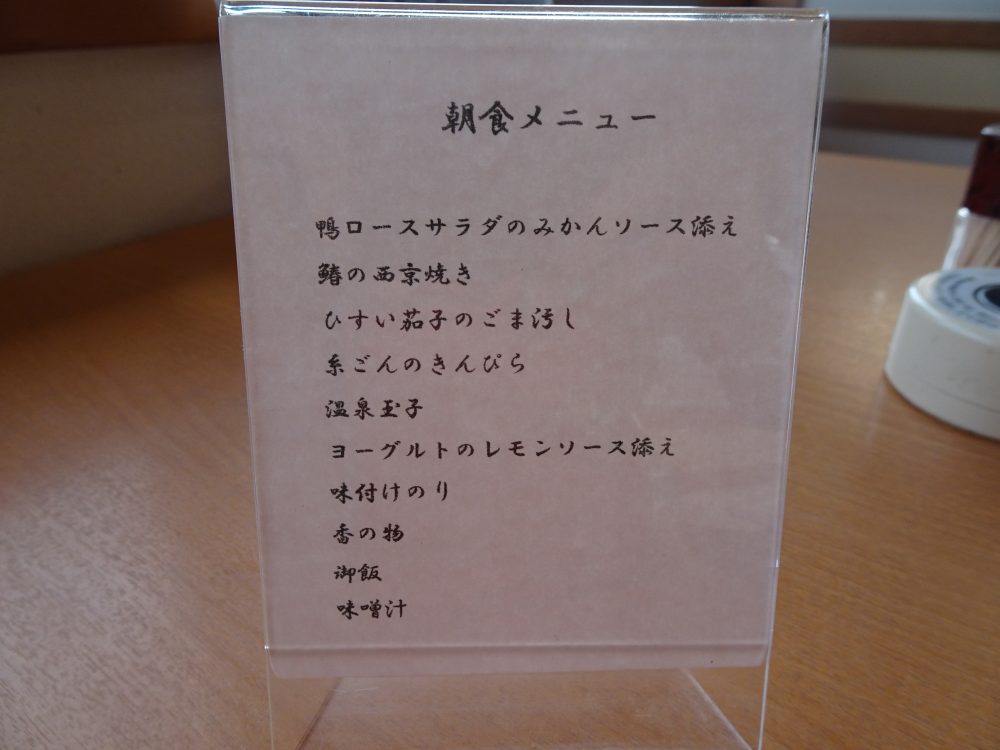 朝食メニュー
鴨ロースサラダのみかんソース添え
鰆の西京焼き
ひすい茄子のごま汚し
糸ごんのきんぴら
温泉玉子
ヨーグルトのレモンソース添え
味付けのり
香の物
御飯
味噌汁